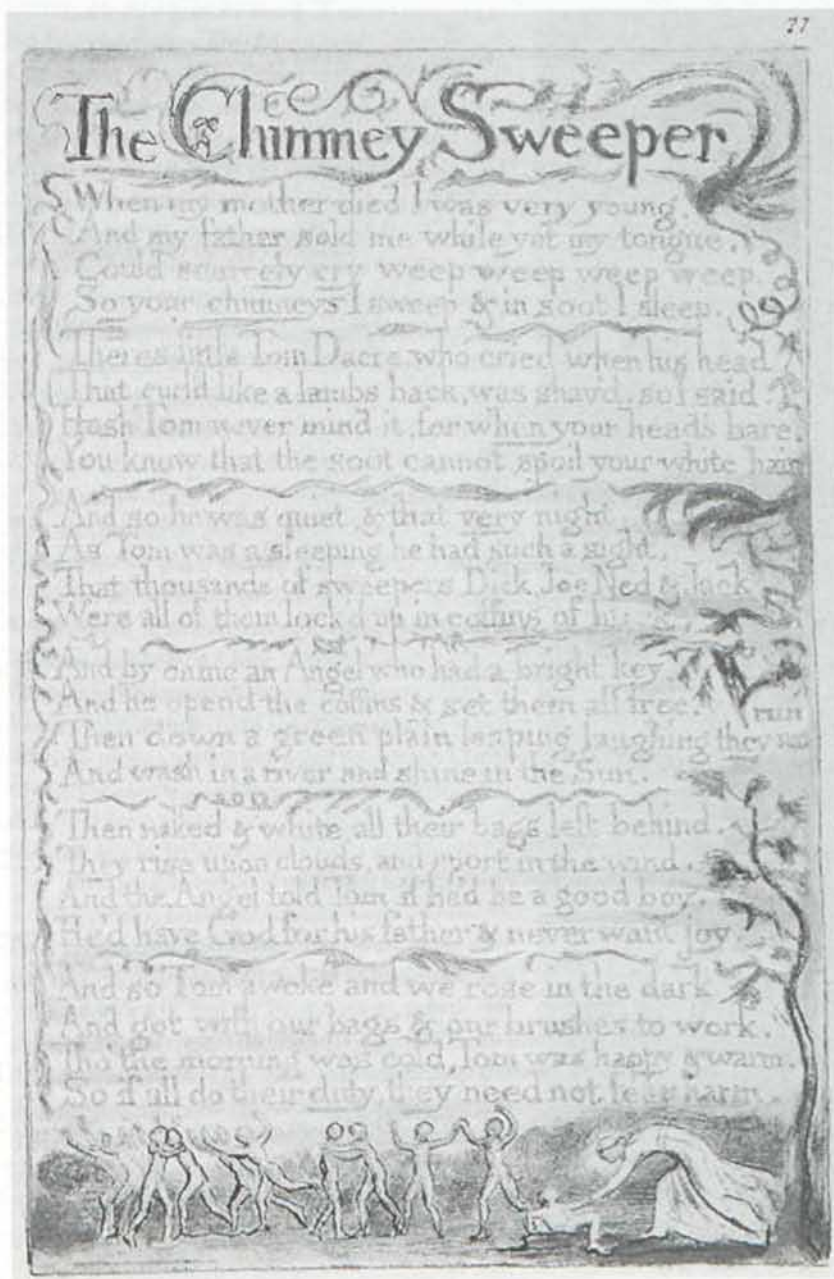 27
The Chimney Sweeper
When my mother died I was very young.
And my father sold me while yet my tongue.
Could scarcely cry weep weep weep weep.
So your chimneys I sweep & in soot I sleep.
Theres little Tom Dacre, who cried when his head
That curl'd like a lambs back, was shav'd, so I said.
Hush Tom never mind it, for when your head's bare,
You know that the soot cannot spoil your white hair
And so he was quiet, & that very night.
As Tom was a sleeping he had such a sight,
That thousands of sweepers Dick, Joe, Ned, & Jack
Were all of them lock'd up in coffins of
And by came an Angel who had a bright key
And he open'd the coffins & set them all free.
Then down a green plain leaping laughing they run
And wash in a river and shine in the Sun.
Then naked & white, all their bags left behind.
They rise upon clouds, and sport in the wind.
And the Angel told Tom, if he'd be a good boy,
He'd have God for his father & never want joy
And so Tom awoke and we rose in the dark
And got with our bags & our brushes to work.
Tho' the morning was cold, Tom was happy & warm.
So if all do their duty, they need not fear harm.